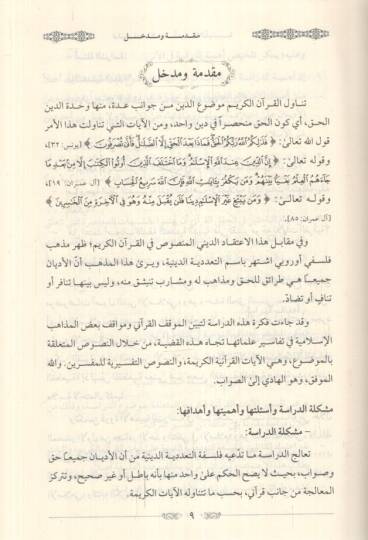 مقدمة ومدخل
مقدمة ومدخل
تناول القرآن الكريم موضوع الدين من جوانب عدة، منها وحدة الدين
الحق، أي كون الحق منحصراً في دين واحد، ومن الآيات التي تناولت هذا الأمر
قول الله تعالى: ﴿فَذَٰلِكُمُ ٱللَّهُ رَبُّكُمُ ٱلۡحَقُّۖ فَمَاذَا بَعۡدَ ٱلۡحَقِّ إِلَّا ٱلضَّلَٰلُۖ فَأَنَّىٰ تُصۡرَفُونَ﴾ [يونس: ٣٢]،
وقوله تعالى: ﴿إِنَّ ٱلدِّينَ عِندَ ٱللَّهِ ٱلۡإِسۡلَٰمُۗ وَمَا ٱخۡتَلَفَ ٱلَّذِينَ أُوتُواْ ٱلۡكِتَٰبَ إِلَّا مِنۢ بَعۡدِ مَا
جَآءَهُمُ ٱلۡعِلۡمُ بَغۡيَۢا بَيۡنَهُمۡۗ وَمَن يَكۡفُرۡ بِـَٔايَٰتِ ٱللَّهِ فَإِنَّ ٱللَّهَ سَرِيعُ ٱلۡحِسَابِ﴾ [آل عمران: ١٩]،
وقوله تعالى: ﴿وَمَن يَبۡتَغِ غَيۡرَ ٱلۡإِسۡلَٰمِ دِينٗا فَلَن يُقۡبَلَ مِنۡهُ وَهُوَ فِي ٱلۡأٓخِرَةِ مِنَ ٱلۡخَٰسِرِينَ﴾
[آل عمران: ٨٥].
وفي مقابل هذا الاعتقاد الديني المنصوص في القرآن الكريم؛ ظهر مذهب
فلسفي أوروبي اشتهر باسم التعددية الدينية، ويرى هذا المذهب أنّ الأديان
جميعاً هي طرائق للحق ومذاهب له ومشارب تنبثق منه، وليس بينها تنافر أو
تنافٍ أو تضادّ.
وقد جاءت فكرة هذه الدراسة لتبين الموقف القرآني ومواقف بعض المذاهب
الإسلامية في تفاسير علمائها تجاه هذه القضية، من خلال النصوص المتعلقة
بالموضوع، وهي الآيات القرآنية الكريمة، والنصوص التفسيرية للمفسرين. والله
الموفق، وهو الهادي إلى الصواب.
مشكلة الدراسة وأسئلتها وأهميتها وأهدافها:
– مشكلة الدراسة:
تعالج الدراسة ما تدّعيه فلسفة التعددية الدينية من أن الأديان جميعاً حق
وصواب، بحيث لا يصح الحكم على واحد منها بأنه باطل أو غير صحيح، وتتركز
المعالجة من جانب قرآني، بحسب ما تتناوله الآيات الكريمة.
٩